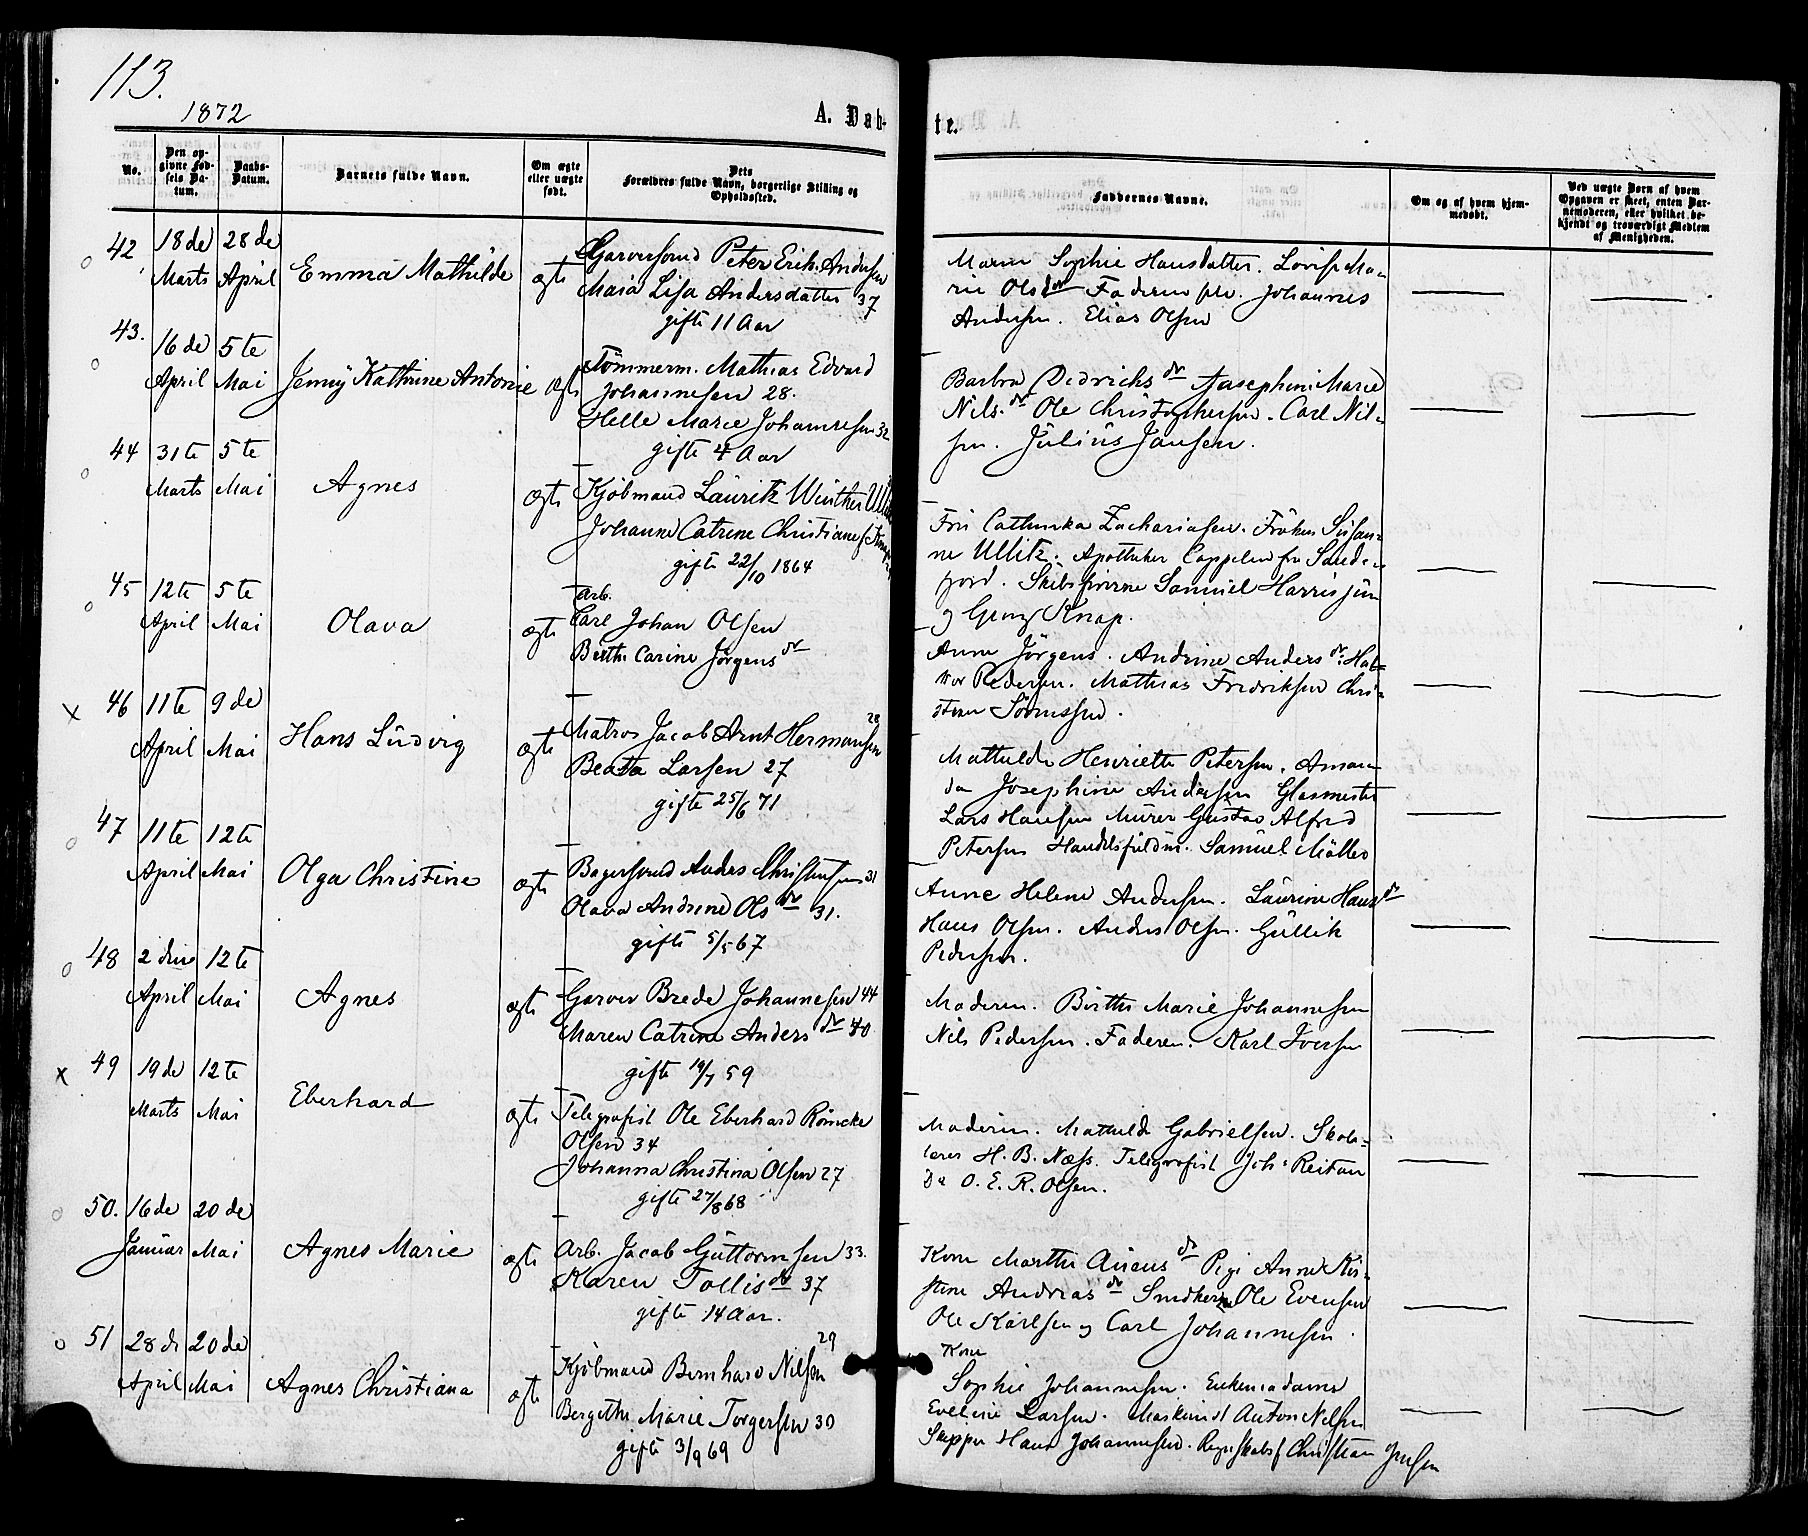 113.
1872
A. Døb-
te.
No.
Den op-
givne Fød-
sels Da-
tum.
Daabs-
Datum.
Barnets fulde Navn.
Om ægte
eller uægte
født.
Dets
Forældres fulde Navn, borgerlige Stilling og
Opholdssted.
Faddernes Navne.
Om og af hvem hjem-
medøbt.
Ved uægte Børn af hvem
Opgaven er skeet, enten Bar-
nemoderen, eller hvilket be-
kjendt og troværdigt Medlem
af Menigheden.
42
18de
Marts
28de
April
Emma Mathilde
ægte
Garversvend Peter Erik Andersen
Maia Lisa Andersdatter 37
gifte 11 Aar
Maren Sophie Hansdatter. Lovise Ma-
rie Olsdr Faderen selv. Johannes
Andersen. Elias Olsen
43.
16de
April
5te
Mai
Jenny Kathrine Antonie
ægte
Tømmerm. Mathias Edvard
Johannesen 28.
Helle Marie Johannesen 32
gifte 4 Aar
Barbra Dedrichsdr Josephine Marie
Nils.dr Ole Christophersen. Carl Nil-
sen. Julius Jansen.
44
31te
Marts
5te
Mai
Agnes
ægte
Kjøbmand Lauritz Winther
Johanne Catrine Christiane
gifte 22/10 1864
Fru Cathinka Zachariasen. Frøken Susan-
ne Ullitz. Apotheker Cappelen fra Sande-
fjord. Skibsførerne Samuel Harris jun
og Georg Knap.
45
12te
April
5te
Mai
Olava
ægte
Arb.
Carl Johan Olsen
Berthe Carine Jørgensdr
Anne Jørgens. Andrine Andersdr. Hal-
vor Pedersen. Mathias Fredriksen Chri-
stian Sørensen.
x 46
11te
April
9de
Mai
Hans Ludvig
ægte
Matros Jacob Arnt Hermansen 28
Beata Larsen 27
gifte 25/6 71
Mathilde Henriette Petersen. Aman-
da Josephine Andersen Glasmester
Lars Hansen Murer Gustav Alfred
Petersen Handelsfuldm. Samuel Møller
47
11te
April
12te
Mai
Olga Christine
ægte
Bagersvend Anders Christensen 31
Olava Andrine Olsdr 31.
gifte 5/5 67
Anne Helene Andersen. Laurine Hansdr
Hans Olsen. Anders Olsen. Gullik
Pedersen.
48
2den
April
12te
Mai
Agnes
ægte
Garver Brede Johannesen 44
Maren Catrine Andersdr 40
gifte 19/7 59
Moderen. Birthe Marie Johannesen
Nils Pedersen. Faderen. Karl Iversen
x 49
19de
Marts
12te
Mai
Eberhard
ægte
Telegrafist Ole Eberhard Röincke
Olsen 34
Johanna Christina Olsen 27
gifte 27/8 68
Moderen. Mathilde Gabrielsen. Skole-
lærer H. B. Næss. Telegrafist Joh: Reitan
Do O. E. R. Olsen.
50.
16de
Januar
20de
Mai
Agnes Marie
ægte
Arb. Jacob Guttormsen 33.
Karen Tollisdr 37
gifte 14 Aar.
Kone Marthe dr Pige Anne Kir-
stine Andreasdr Ole Evensen
Ole Karlsen og Carl Johannesen.
51
28de
April
20de
Mai
Agnes Christiana
ægte
Kjøbmand Bernhard Nilsen 29
Bergethe Marie Torgersen 30
gifte 3/9 69
Kone
Sophie Johannesen. Enkemadame
Eveline Larsen. Maskinist Anton Nilsen
Skipper Hans Johannesen. Regnskabsf Christian Jensen